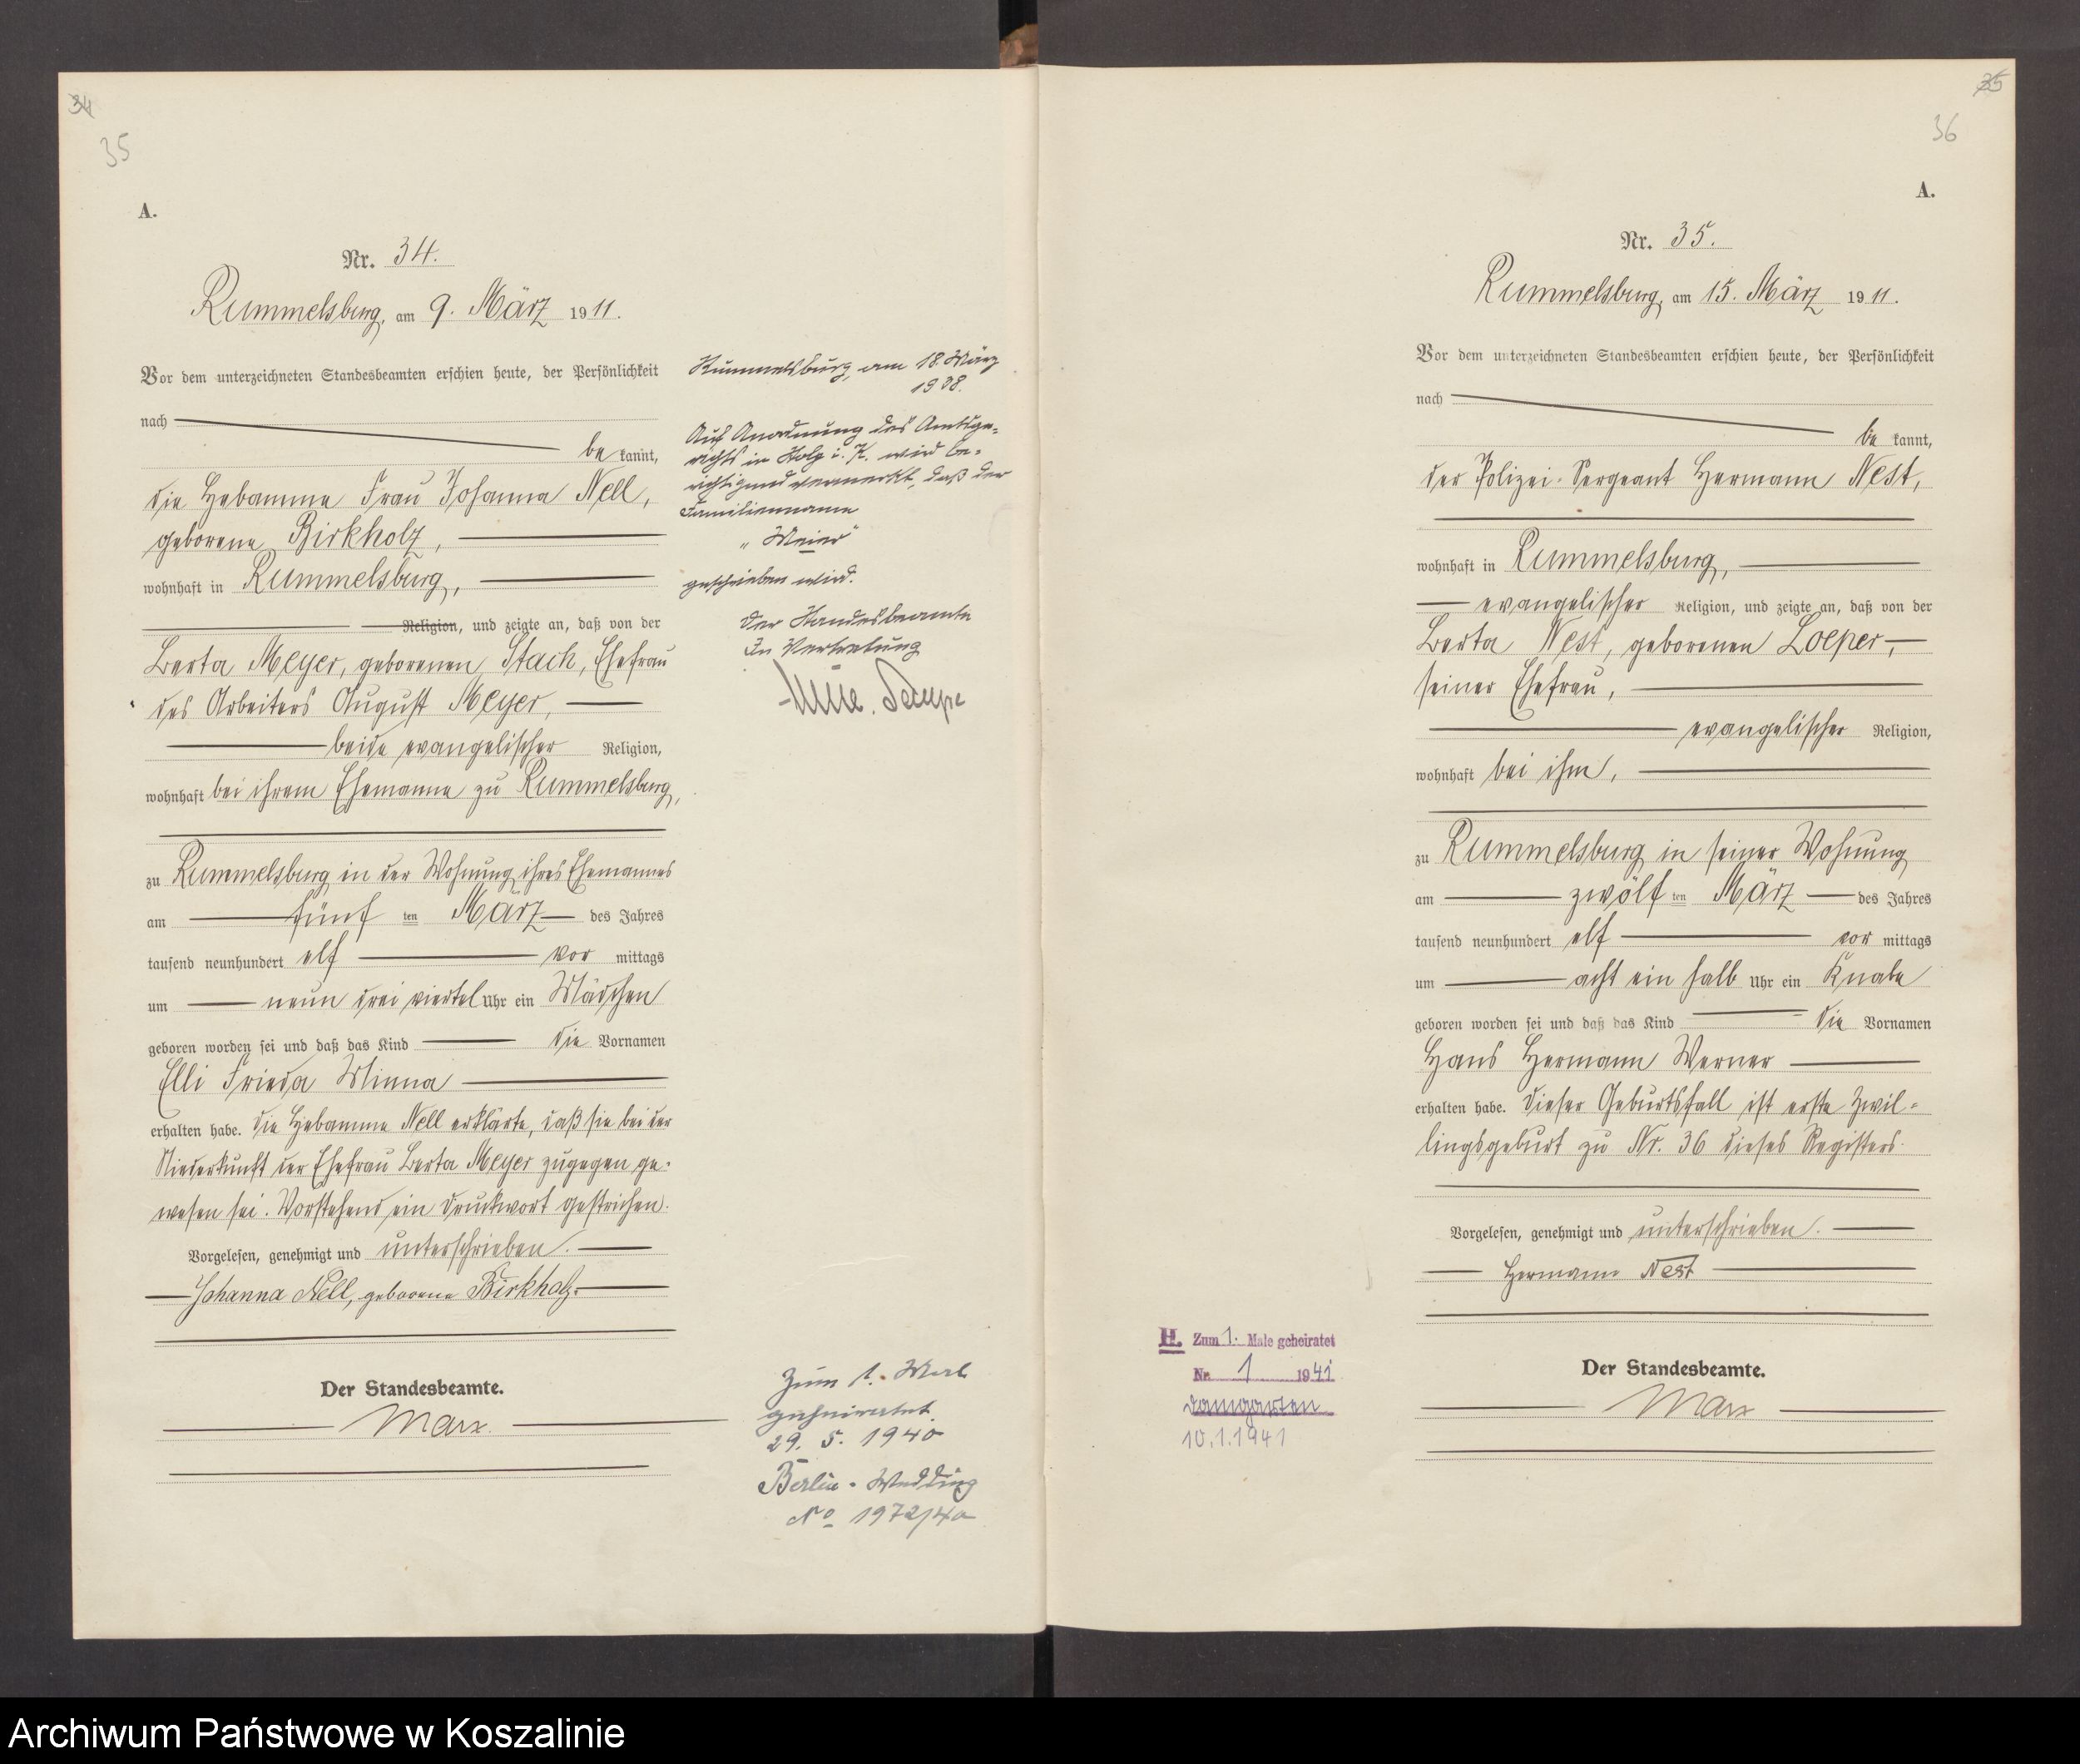 34
35
A.
Nr. 34.
Rummelsburg, am 9. März 1911.
Vor dem unterzeichneten Standesbeamten erschien heute, der Persönlichkeit
nach
be kannt,
die Hebamme Frau Johanna Nell,
geborene Birkholz,
wohnhaft in Rummelsburg,
Religion, und zeigte an, daß von der
Berta Meyer, geborenen Stach, Ehefrau
des Arbeiters August Meyer,
beide evangelischer Religion,
wohnhaft bei ihrem Ehemanne zu Rummelsburg,
zu Rummelsburg in der Wohnung ihres Ehemannes
am fünf ten März des Jahres
tausend neunhundert elf vor mittags
um neun drei viertel Uhr ein Mädchen
geboren worden sei und daß das Kind die Vornamen
Elli Frieda Minna
erhalten habe. Die Hebamme Nell erklärte, daß sie bei der
Niederkunft der Ehefrau Berta Meyer zugegen ge-
wesen sei. Vorstehend ein Druckwort gestrichen.
Vorgelesen, genehmigt und unterschrieben.
Johanna Nell, geborene Birkholz.
Der Standesbeamte.
Marx.
Rummelsburg, am 18. März
1938.
Auf Anordnung des Amtsge-
richts in Stolp i. P. wird be-
richtigend vermerkt, daß der
Familienname
„Meier"
geschrieben wird.
Der Standesbeamte
In Vertretung
Zum 1. Mal
geheiratet
29. 5. 1940
Berlin-Wedding
No 1972/40
35
36
A.
Nr. 35.
Rummelsburg, am 15. März 1911.
Vor dem unterzeichneten Standesbeamten erschien heute, der Persönlichkeit
nach
be kannt,
der Polizei-Sergeant Hermann Nest,
wohnhaft in Rummelsburg,
evangelischer Religion, und zeigte an, daß von der
Berta Nest, geborenen Loeper,
seiner Ehefrau,
evangelischer Religion,
wohnhaft bei ihm,
zu Rummelsburg in seiner Wohnung
am zwölf ten März des Jahres
tausend neunhundert elf vor mittags
um acht ein halb Uhr ein Knabe
geboren worden sei und daß das Kind die Vornamen
Hans Hermann Werner
erhalten habe. Dieser Geburtsfall ist erste Zwil-
lingsgeburt zu Nr. 36 dieses Registers.
Vorgelesen, genehmigt und unterschrieben.
Hermann Nest
Der Standesbeamte.
Marx
H. Zum 1. Male geheiratet
Nr. 1 1941
Damgarten
10.1.1941
Archiwum Państwowe w Koszalinie